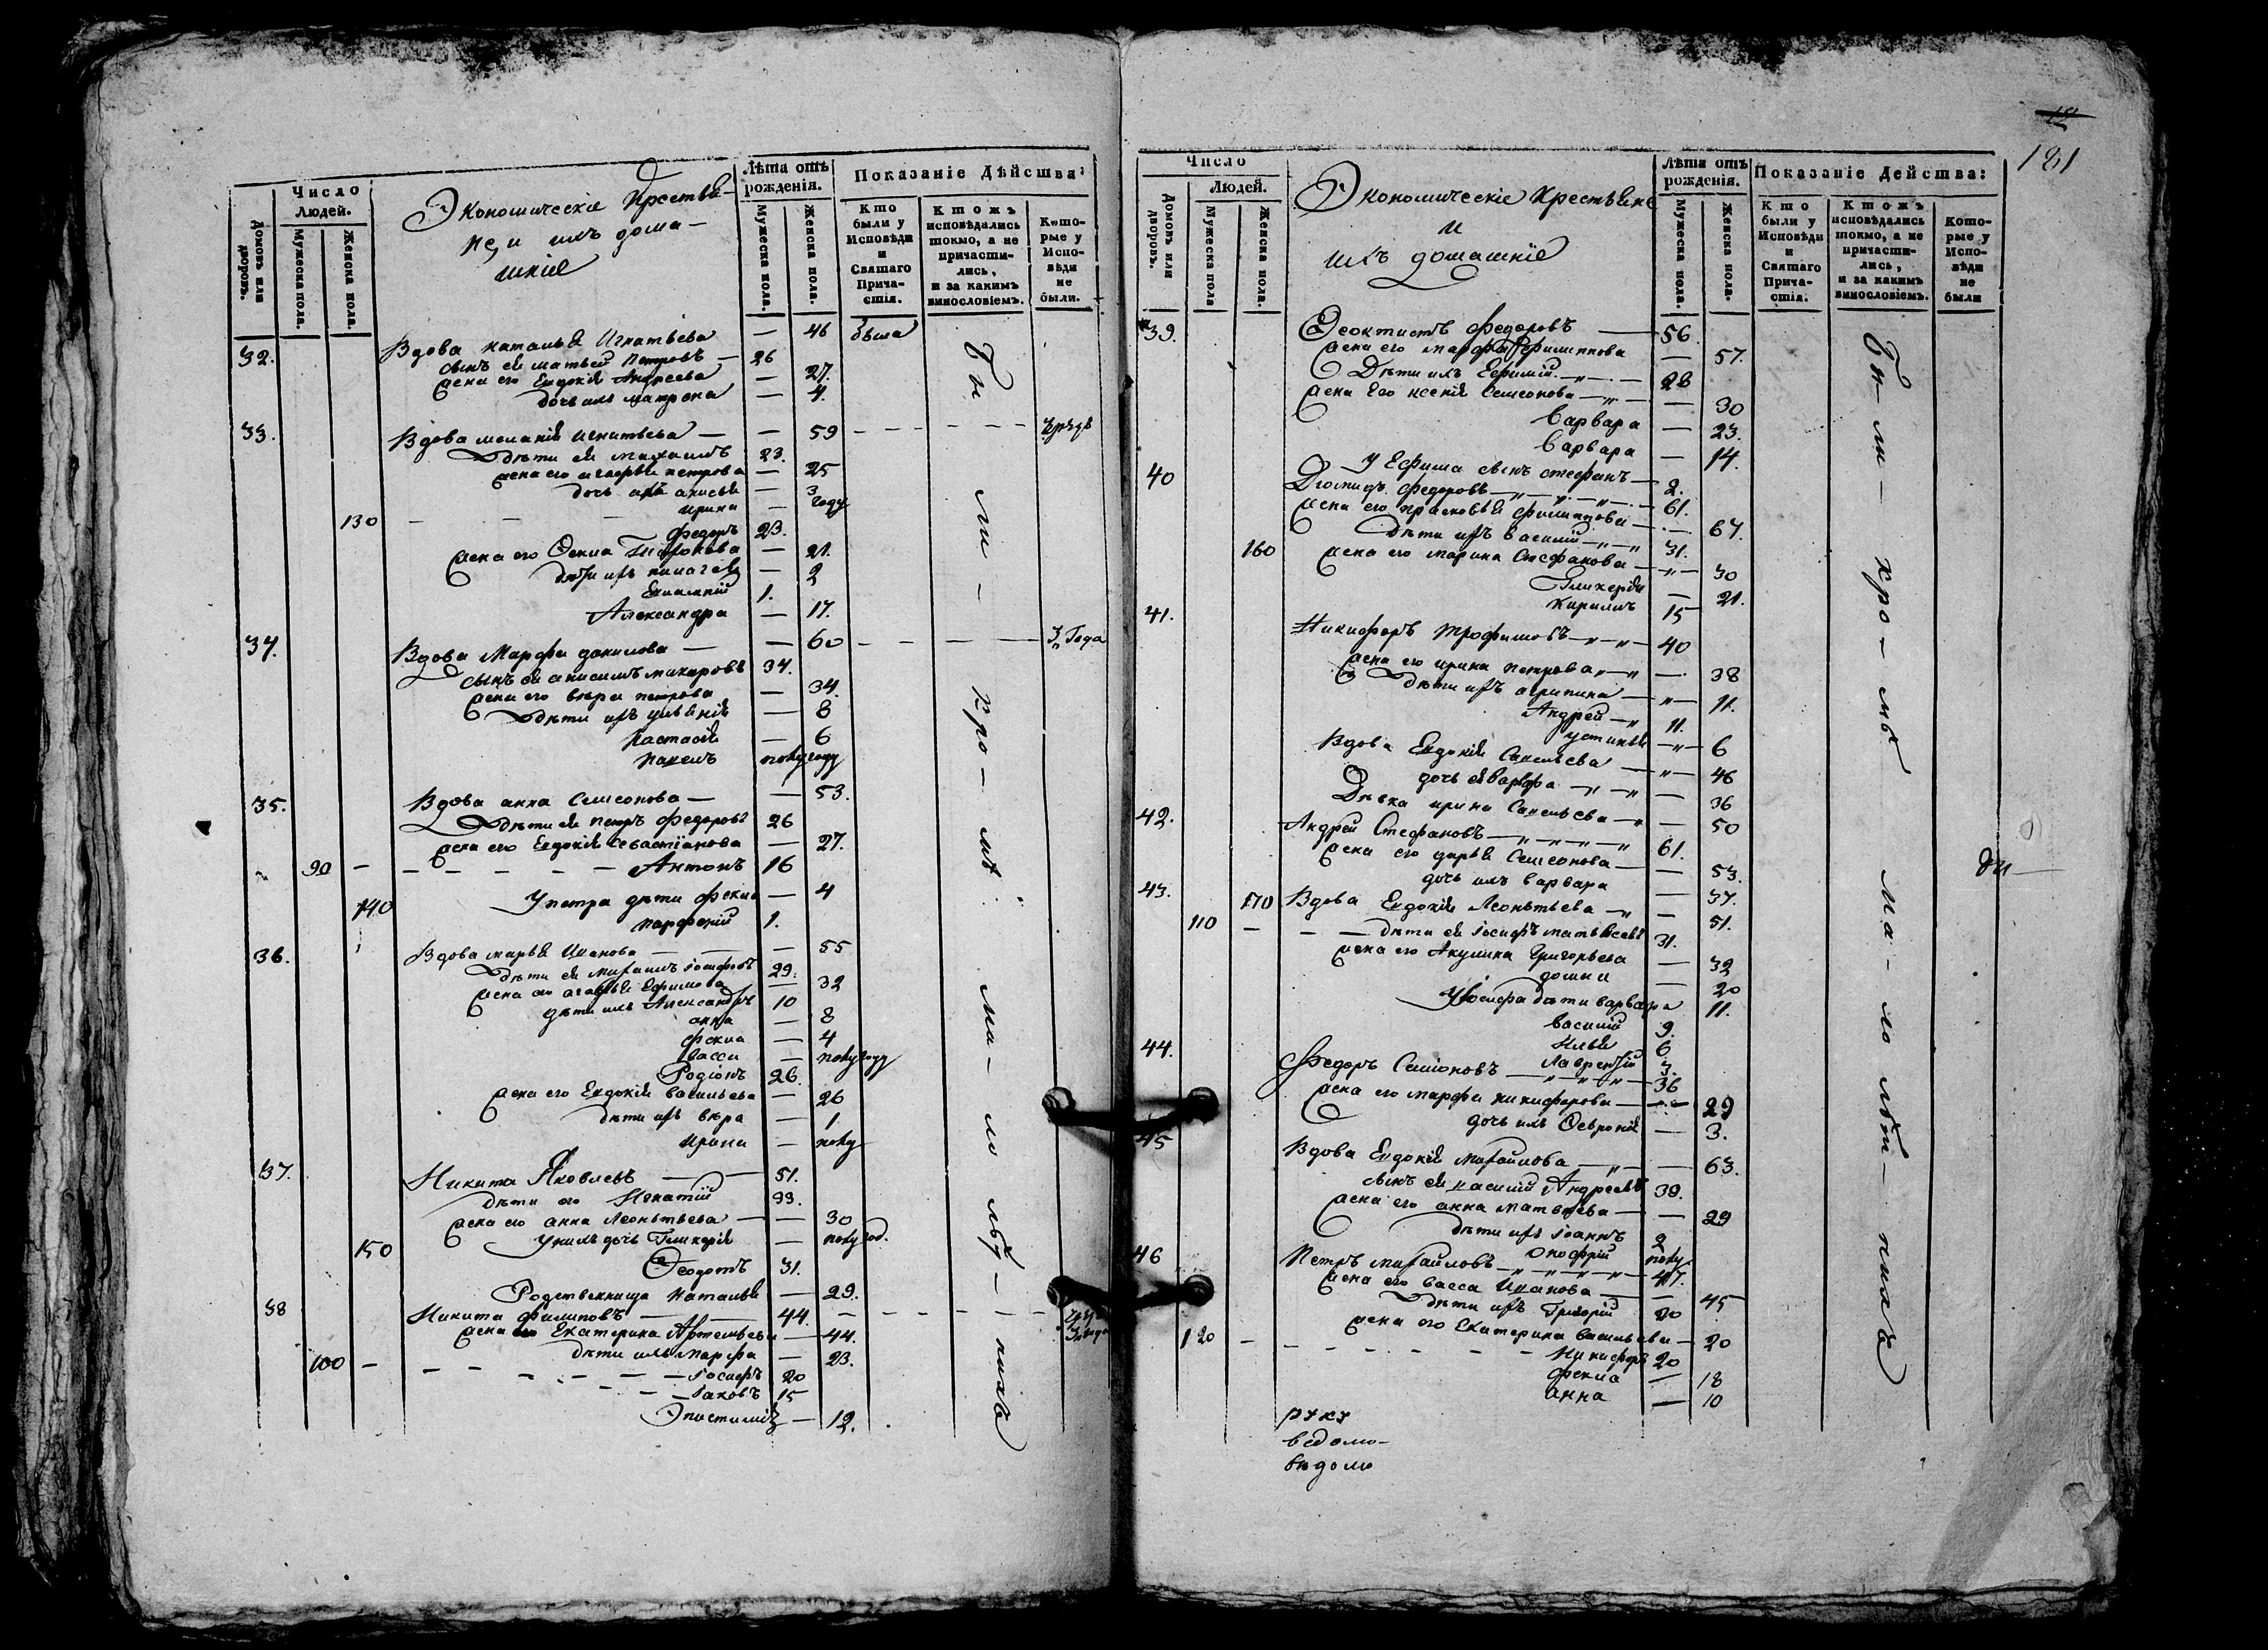 Число
Людей.
Домовъ или дворовъ.
Мужеска пола.
Женска пола.
Экономическіе Крестья-
не, и ихъ дома-
шніе
Лѣта отъ
рожденія.
Мужеска пола.
Женска пола.
Показаніе Дѣйства:
Кто
были у
Исповѣди
и
Святаго
Прича-
стія.
Ктожъ
исповѣдались
токмо, а не
причасти-
лись,
и за какимъ
винословіемъ.
Кото-
рые у
Испо-
вѣди
не
были.
32. Вдова Наталья Игнатьева — 46 была
сынъ ея Матвей Петровъ — 26
жена его Евдокія Андреева — 27.
дочь ихъ Матрена — 4.
33. Вдова Меланія Игнатьева — — 59
дѣти ея Михаилъ 23.
жена его Агафья Петрова — 25
дочь ихъ Анисья — 3
Ирина — году
130 Федоръ 23.
жена его Фекла — 21.
дѣти ихъ — 2
1.
Александра — 17.
34. Вдова Марфа Данилова — — 60 — 3 Года
сынъ ея Анисимъ Макаровъ 34.
жена его Вѣра Петрова — 34.
дѣти ихъ — 8
Настасья — 6
Павелъ полугоду
35. Вдова Анна Семеонова — — 53.
дѣти ея Петръ Федоровъ 26
жена его Евдокія Севастіанова — 27.
90 — Антонъ 16
140 У Петра дѣти Фекла — 4
Парфеній 1.
36. Вдова Марья Иванова — — 55
дѣти ея Михаилъ Іосифовъ 29.
жена его Агафья Ефимова — 32
дѣти ихъ Александръ 10
Анна — 8
Фекла — 4
Васса — полугоду
Родіонъ 26.
жена его Евдокія Васильева — 26
дѣти ихъ Вѣра — 1
Ирина — полу
37. Никита Яковлевъ — 51.
дѣти его Игнатій 33.
жена его Анна Леонтьева — — 30
у нихъ дочь Гликерія — полугод.
150 Ѳеодотъ 31.
Родственница Наталья — 29.
38 Никита Филиповъ — 44.
жена его Екатерина Артемьева — 44.
дѣти ихъ Марфа — 23.
100 — Іосифъ 20
Іаковъ 15
— 12.
Бы-ли-кро-мѣ ма-ло лѣт-нихъ
181
Число
Людей.
Домовъ или дворовъ.
Мужеска пола
Женска пола.
Экономическіе Крестьяне
и
ихъ домашніе
Лѣта отъ
рожденія.
Мужеска пола.
Женска пола.
Показаніе Дейсшва:
Кто
были у
Исповѣди
и
Святаго
Прича-
стія.
Ктожъ
исповѣдались
токмо, а не
причасти-
лись,
и за какимъ
винословіемъ.
Кото-
рые у
Испо-
вѣди
не
были
39. Ѳеоктистъ Федоровъ — 56.
жена его Марфа Филиппова — 57.
Дѣти ихъ Ефимій — 28
жена его Ксенія Семеонова — 30
Варвара — 23.
Варвара — 14.
У Ефима сынъ Стефанъ — 2.
40 Діомидъ Федоровъ — 61.
жена его Прасковья Филиппова — 67.
дѣти ихъ Василій — 31.
160 жена его Марина Стефанова — 30
Гликерія — 21.
Кирилъ 15
41. Никифоръ Трофимовъ — 40
жена его Ирина Петрова — 38
дѣти ихъ Агрипина — 11.
Андрей — 11.
Устинья — 6
Вдова Евдокія Савельева — 46
дочь ея Варвара — 36
Дѣвка Ирина Савельева — 50
42. Андрей Стефановъ — 61.
жена его Дарья Семеонова — 53.
дочь ихъ Варвара — 37.
43. 170 Вдова Евдокія Леонтьева — 51.
110 — дѣти ея Іосифъ Матвѣевъ 31.
жена его Акулина Григорьева — 32
Домна — 20
У Іосифа дѣти Варвара 11.
Василій 9.
Илья 6
Лаврентій 3.
44. Федоръ Симіоновъ — 36
жена его Марфа Никифорова — 29
дочь ихъ Февронія — 3.
45 Вдова Евдокія Михаилова — 63.
сынъ ея Василій Андреевъ 39.
жена его Анна Матвеева — 29
дѣти ихъ Іоаннъ 2
Онофрій полу
46 Петръ Михаиловъ — 47.
жена его Васса Иванова — 45
дѣти ихъ Григорій 20
жена его Екатерина Васильева — 20
120 — Никифоръ 20
Фекла — 18
Анна — 10
Бы-ли-кро-мѣ ма-ло лѣт-нихъ
руку
ведомо-
вѣдомо